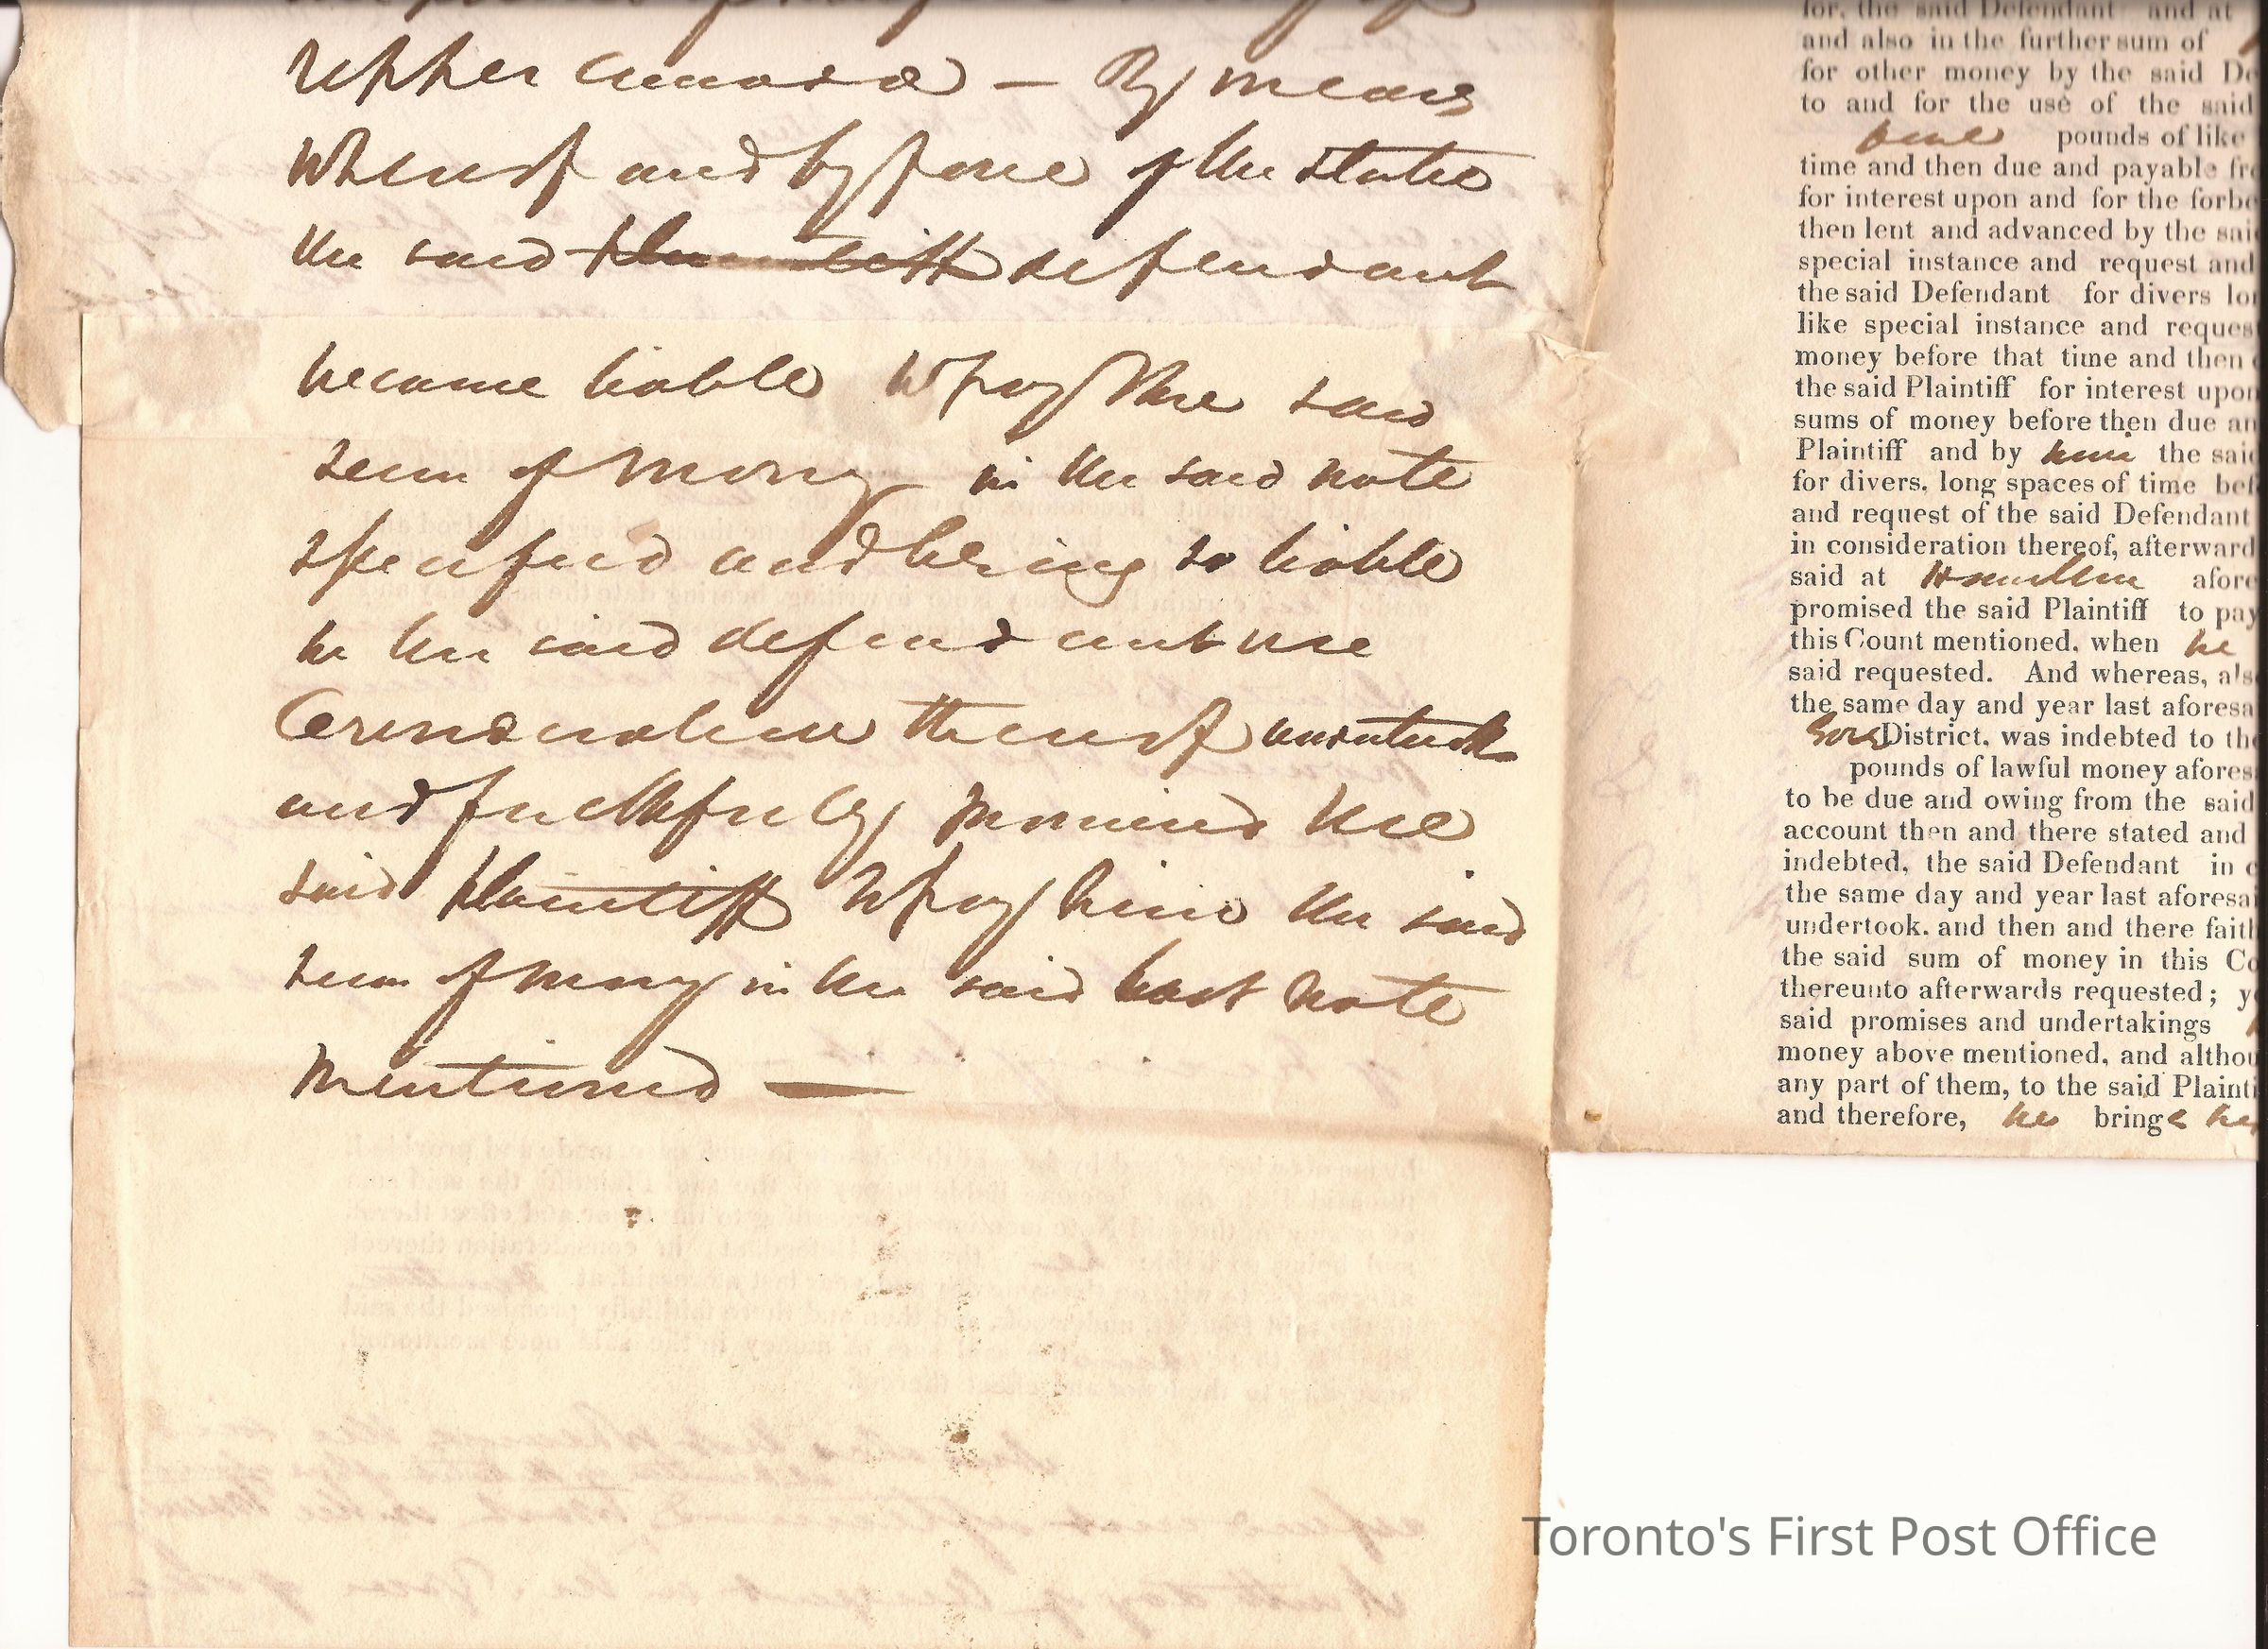 Upper Canada — By means
whereof and by force of the statute
the said plaintiff defendant
became liable to pay the said
sum of money in the said note
specified and being so liable
he the said defendant in
Consideration thereof undertook
and faithfully promised the
said plaintiff to pay him the said
sum of money in the said last note
mentioned —
for, the said Defendant and at
and also in the further sum of
for other money by the said
to and for the use of the said
pounds of like
time and then due and payable
for interest upon and for the
then lent and advanced by the
special instance and request and
the said Defendant for divers
like special instance and
money before that time and then
the said Plaintiff for interest upon
sums of money before then due
Plaintiff and by him the said
for divers, long spaces of time
and request of the said Defendant
in consideration thereof,
said at Hamilton
promised the said Plaintiff to pay
this Count mentioned, when he
said requested. And whereas,
the same day and year last
Gore District, was indebted to
pounds of lawful money
to be due and owing from the said
account then and there stated and
indebted, the said Defendant in
the same day and year last
undertook, and then and there
the said sum of money in this
thereunto afterwards requested;
said promises and undertakings
money above mentioned, and
any part of them, to the said
and therefore, he brings
Toronto's First Post Office